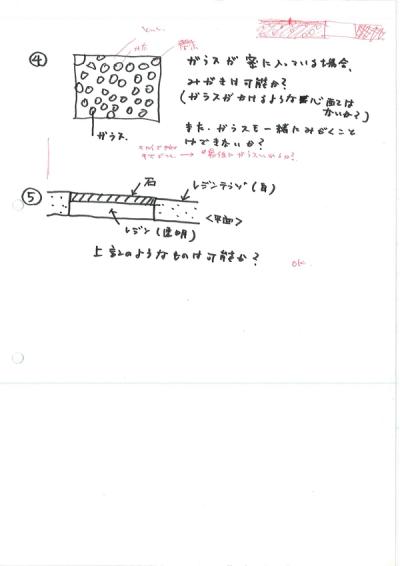 ④
ガラスが密に入っている場合、
みがきは可能か?
(ガラスがかけるような心配は
ないか?)
また、ガラスを一緒にみがくこと
はできないか?
ガラス
→ 最後にガラスいれるか?
⑤
石
レジンテラゾ(白)
<平面>
レジン(透明)
上記のようなものは可能か?
OK